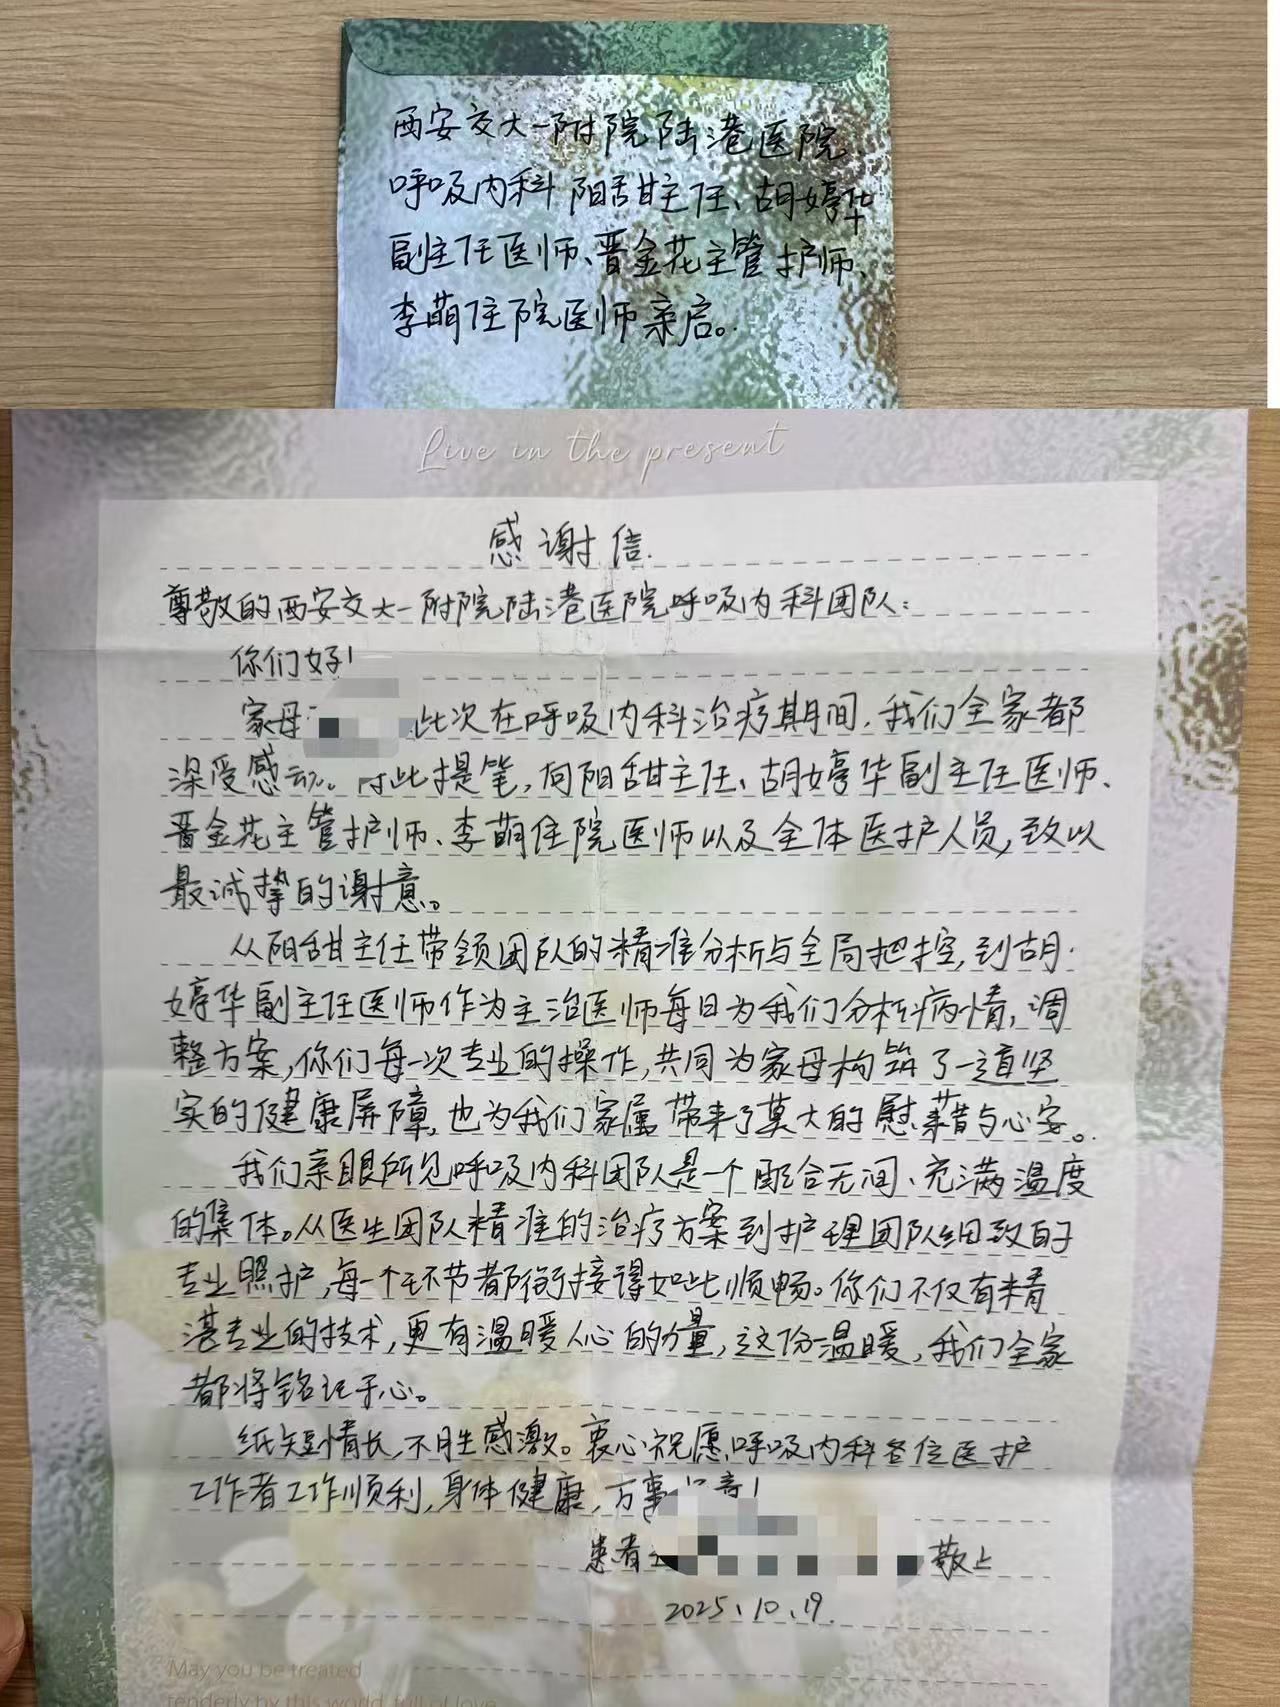 西安交大一附院陆港医院
呼吸内科阳甜主任、胡婷华
副主任医师、晋金花主管护师、
李萌住院医师亲启。
Live in the present
感谢信
尊敬的西安交大一附院陆港医院呼吸内科团队：
你们好！
家母 此次在呼吸内科治疗期间，我们全家都
深受感动。 此提笔，向阳甜主任、胡婷华副主任医师、
晋金花主管护师、李萌住院医师以及全体医护人员，致以
最诚挚的谢意。
从阳甜主任带领团队的精准分析与全局把控，到胡
婷华副主任医师作为主治医师每日为我们分析病情，调
整方案，你们每一次专业的操作，共同为家母构筑了一道坚
实的健康屏障，也为我们家属带来了莫大的慰藉与心安。
我们亲眼所见呼吸内科团队是一个配合无间、充满温度
的集体。从医生团队精准的治疗方案到护理团队细致的
专业照护，每一个环节都衔接得如此顺畅。你们不仅有精
湛专业的技术，更有温暖人心的力量，这份温暖，我们全家
都将铭记于心。
纸短情长，不胜感激。衷心祝愿呼吸内科各位医护
工作者工作顺利，身体健康，万事 意！
患者 敬上
2025、10、19.
May you be treated
tenderly by this world full of love